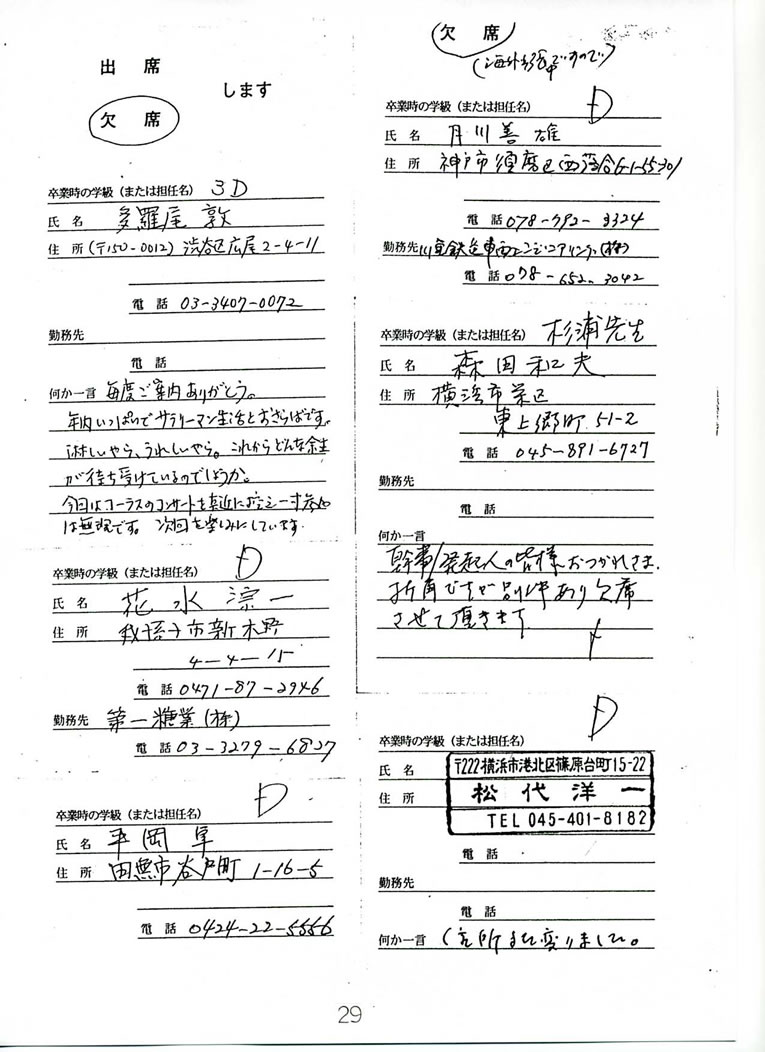 出 席
します
欠 席
卒業時の学級（または担任名） 3D
氏 名 多羅尾 敦
住 所 (〒150-0012) 渋谷区広尾2-4-11
電 話 03-3407-0072
勤務先
電 話
何か一言 毎度ご案内ありがとう。
年内いっぱいでサラリーマン生活とおさらばです。
淋しいやら、うれしいやら。これからどんな余生
が待ち受けているのでしょうか。
今回はコーラスのコンサートを真近に控え一寸参加
は無理です。次回を楽しみにしています。
D
卒業時の学級（または担任名）
氏 名 花 水 涼 一
住 所 我孫子市新木野
4-4-15
電 話 0471-87-2946
勤務先 第一糖業(株)
電 話 03-3279-6827
D
卒業時の学級（または担任名）
氏 名 平 岡 阜
住 所 田無市谷戸町 1-16-5
電 話 0424-22-5556
欠 席
(海外旅行中ですので)
D
卒業時の学級（または担任名）
氏 名 月川善雄
住 所 神戸市須磨区西落合6-1-55-301
電 話 078-792-3324
勤務先
電 話 078-652-3042
卒業時の学級（または担任名） 杉浦先生
氏 名 森田和夫
住 所 横浜市栄区
東上郷町 51-2
電 話 045-891-6727
勤務先
電 話
何か一言
幹事/発起人の皆様おつかれさま.
折角ですが別件あり欠席
させて頂きます
D
卒業時の学級（または担任名）
氏 名
住 所
〒222横浜市港北区篠原台町15-22
松 代 洋 一
TEL 045-401-8182
電 話
勤務先
電 話
何か一言 (住所また変りました。
29